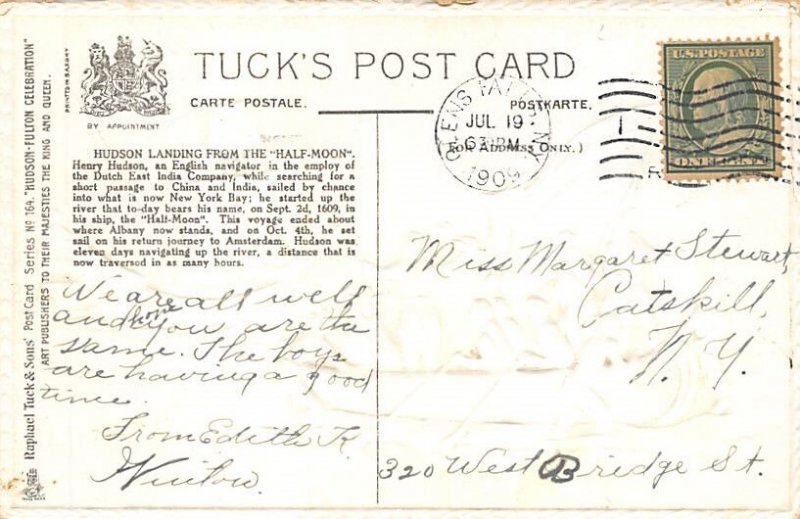 TUCK'S POST CARD
CARTE POSTALE.
POSTKARTE.
(FOR ADDRESS ONLY.)
BY APPOINTMENT
PRINTED IN SAXONY
Raphael Tuck & Sons' Post Card Series Nº 164. "HUDSON-FULTON CELEBRATION"
ART PUBLISHERS TO THEIR MAJESTIES THE KING AND QUEEN.
HUDSON LANDING FROM THE "HALF-MOON".
Henry Hudson, an English navigator in the employ of
the Dutch East India Company, while searching for a
short passage to China and India, sailed by chance
into what is now New York Bay; he started up the
river that to-day bears his name, on Sept. 2d, 1609, in
his ship, the "Half-Moon". This voyage ended about
where Albany now stands, and on Oct. 4th, he set
sail on his return journey to Amsterdam. Hudson was
eleven days navigating up the river, a distance that is
now traversed in as many hours.
We are all well
and hope you are the
same. The boys
are having a good
time.
From Edith K
Winlow.
U.S. POSTAGE
ONE CENT
JUL 19
1909
N.Y.
Miss Margaret Stewart,
Catskill,
N. Y.
320 West Bridge St.